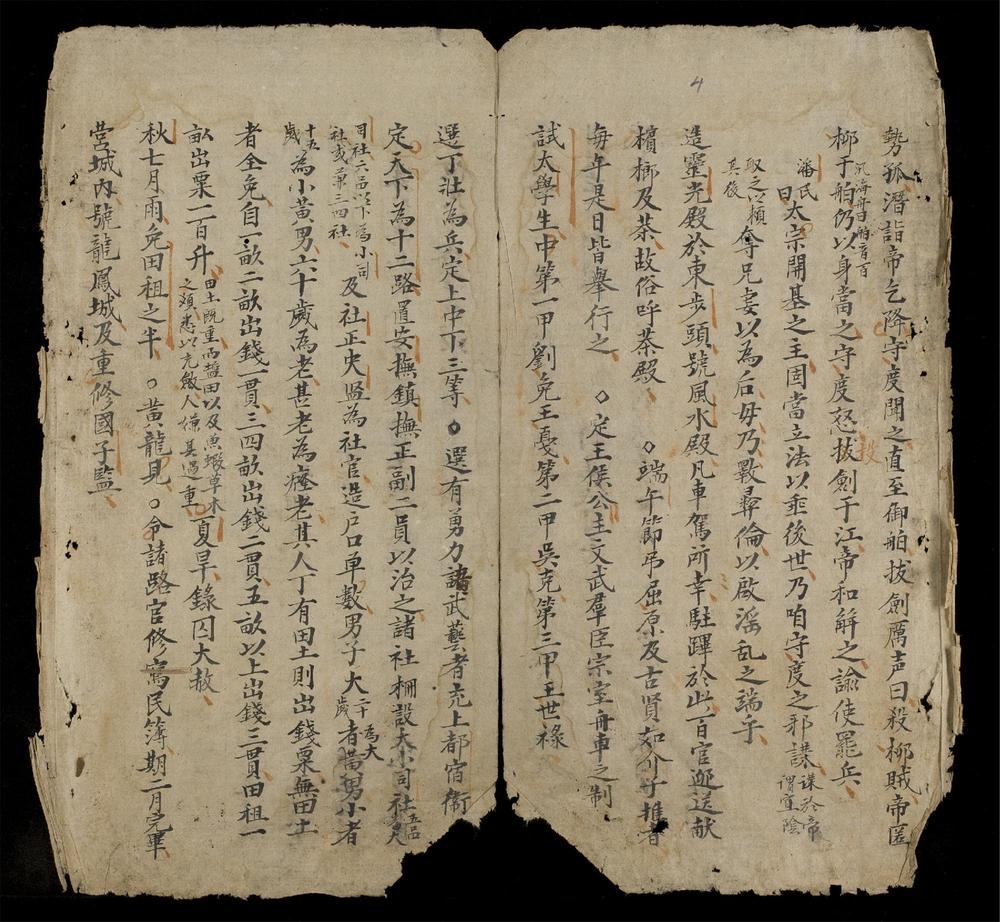 4
勢孤潛詣帝乞降守度聞之直至御舶拔劍厲声曰殺柳賊帝匿
柳于舶仍以身當之守度怒拔劍于江帝和解之諭使罷兵
汎海舟曰舶音百
投
潘氏曰太宗開基之主固當立法以垂後世乃咱守度之邪謀謀於帝謂寔陰
取之以頼其後奪兄妻以為后毋乃斁彛倫以啟滛乱之端乎
造靈光殿於東步頭號風水殿凡車駕所幸駐蹕於此百官迎送献
檳榔及茶故俗呼茶殿 ○端午節吊屈原及古賢如介子推者
每年是日皆舉行之 ○定王侯公主文武羣臣宗室舟車之制
試太學生中第一甲劉免王戞第二甲吳克第三甲王世祿
選丁壯為兵定上中下三等 ○選有勇力諸武藝者充上都宿衛
定天下為十二路置安撫鎮撫正副二員以治之諸社柵設大小司社五品
司社六品以下為小司社或兼三四社及社正史監為社官造户口单數男子大二十歲為大者黃男小者
十五歲為小黃男六十歲為老甚老為癃老其人丁有田土則出錢粟無田土
者全免自一畝二畝出錢一貫三四畝出錢二貫五畝以上出錢三貫田租一
畝出粟一百升田土既重而塩田以及魚蝦草木之類悉以充斂人嫌其過重夏旱錄囚大赦
秋七月雨免田租之半 ○黃龍見 ○令諸路官修寫民簿期二月完畢
营城内號龍鳳城及重修國子監